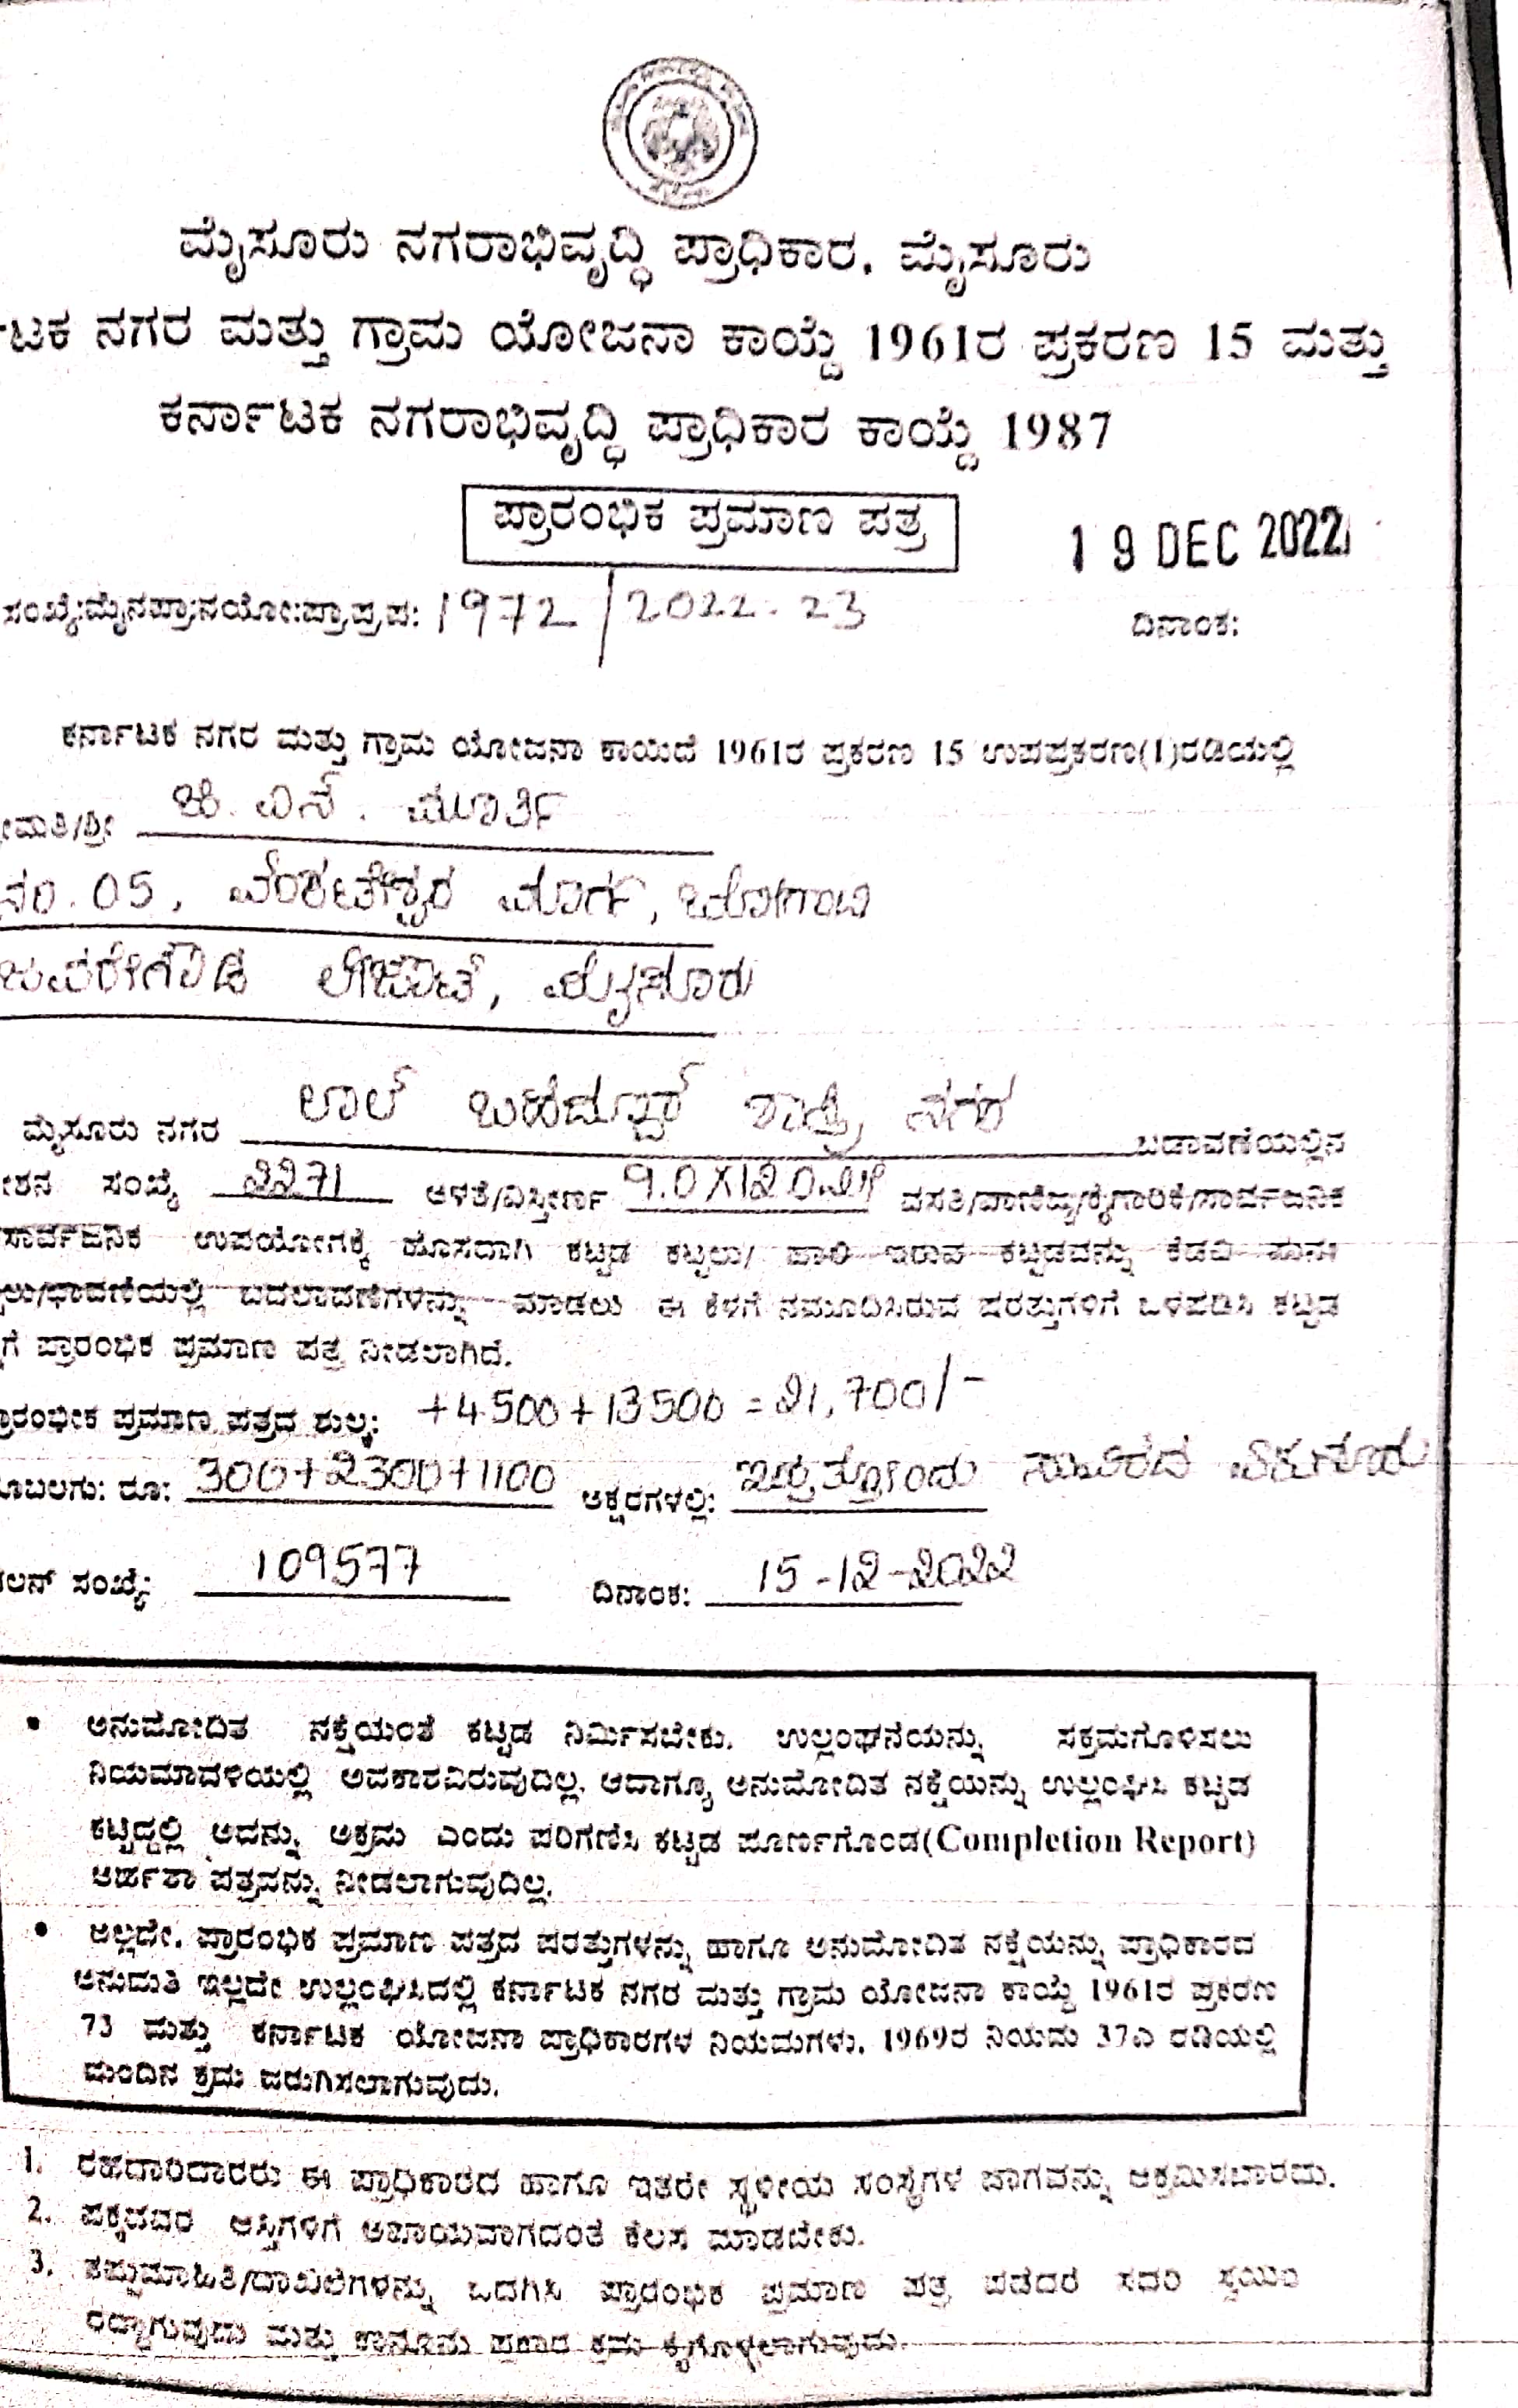 ಮೈಸೂರು ನಗರಾಭಿವೃದ್ಧಿ ಪ್ರಾಧಿಕಾರ, ಮೈಸೂರು
ಟಕ ನಗರ ಮತ್ತು ಗ್ರಾಮ ಯೋಜನಾ ಕಾಯ್ದೆ 1961ರ ಪ್ರಕರಣ 15 ಮತ್ತು
ಕರ್ನಾಟಕ ನಗರಾಭಿವೃದ್ಧಿ ಪ್ರಾಧಿಕಾರ ಕಾಯ್ದೆ 1987
ಪ್ರಾರಂಭಿಕ ಪ್ರಮಾಣ ಪತ್ರ
19 DEC 2022
ಸಂಖ್ಯೆ:ಮೈನಪ್ರಾ:ನಯೋ:ಪ್ರಾ.ಪ್ರ.ಪ: 1972/2022-23 ದಿನಾಂಕ:
ಕರ್ನಾಟಕ ನಗರ ಮತ್ತು ಗ್ರಾಮ ಯೋಜನಾ ಕಾಯಿದೆ 1961ರ ಪ್ರಕರಣ 15 ಉಪಪ್ರಕರಣ(1)ರಡಿಯಲ್ಲಿ
ೀಮತಿ/ಶ್ರೀ ಎನ್. ಮೂರ್ತಿ
ನಂ. 05, ವೆಂಕಟೇಶ್ವರ ಮಾರ್ಗ, ಬೋಗಾದಿ
ಜವರೇಗೌಡ ಲೇಔಟ್, ಮೈಸೂರು
ಮೈಸೂರು ನಗರ ಲಾಲ್ ಬಹದ್ದೂರ್ ಶಾಸ್ತ್ರಿ ನಗರ ಬಡಾವಣೆಯಲ್ಲಿನ
ೇಶನ ಸಂಖ್ಯೆ 2271 ಅಳತೆ/ವಿಸ್ತೀರ್ಣ 9.0X12.0ಮೀ ವಸತಿ/ವಾಣಿಜ್ಯ/ಕೈಗಾರಿಕೆ/ಸಾರ್ವಜನಿಕ
ಸಾರ್ವಜನಿಕ ಉಪಯೋಗಕ್ಕೆ ಹೊಸದಾಗಿ ಕಟ್ಟಡ ಕಟ್ಟಲು/ ಹಾಲಿ ಇರುವ ಕಟ್ಟಡವನ್ನು ಕೆಡವಿ ಪುನಃ
ಲು/ಛಾವಣಿಯಲ್ಲಿ ಬದಲಾವಣೆಗಳನ್ನು ಮಾಡಲು ಈ ಕೆಳಗೆ ನಮೂದಿಸಿರುವ ಷರತ್ತುಗಳಿಗೆ ಒಳಪಡಿಸಿ ಕಟ್ಟಡ
ಗೆ ಪ್ರಾರಂಭಿಕ ಪ್ರಮಾಣ ಪತ್ರ ನೀಡಲಾಗಿದೆ.
ಾರಂಭಿಕ ಪ್ರಮಾಣ ಪತ್ರದ ಶುಲ್ಕ: +4500+13500 = 21,700/-
ಬಲಗು: ರೂ: 300+2300+1100 ಅಕ್ಷರಗಳಲ್ಲಿ: ಇಪ್ಪತ್ತೊಂದು ಸಾವಿರದ ಏಳುನೂರು
ಲನ್ ಸಂಖ್ಯೆ: 109577 ದಿನಾಂಕ: 15-12-2022
• ಅನುಮೋದಿತ ನಕ್ಷೆಯಂತೆ ಕಟ್ಟಡ ನಿರ್ಮಿಸಬೇಕು. ಉಲ್ಲಂಘನೆಯನ್ನು ಸಕ್ರಮಗೊಳಿಸಲು
ನಿಯಮಾವಳಿಯಲ್ಲಿ ಅವಕಾಶವಿರುವುದಿಲ್ಲ. ಆದಾಗ್ಯೂ ಅನುಮೋದಿತ ನಕ್ಷೆಯನ್ನು ಉಲ್ಲಂಘಿಸಿ ಕಟ್ಟಡ
ಕಟ್ಟಿದ್ದಲ್ಲಿ ಅದನ್ನು ಅಕ್ರಮ ಎಂದು ಪರಿಗಣಿಸಿ ಕಟ್ಟಡ ಪೂರ್ಣಗೊಂಡ(Completion Report)
ಅರ್ಹತಾ ಪತ್ರವನ್ನು ನೀಡಲಾಗುವುದಿಲ್ಲ.
• ಅಲ್ಲದೇ, ಪ್ರಾರಂಭಿಕ ಪ್ರಮಾಣ ಪತ್ರದ ಷರತ್ತುಗಳನ್ನು ಹಾಗೂ ಅನುಮೋದಿತ ನಕ್ಷೆಯನ್ನು ಪ್ರಾಧಿಕಾರದ
ಅನುಮತಿ ಇಲ್ಲದೇ ಉಲ್ಲಂಘಿಸಿದಲ್ಲಿ ಕರ್ನಾಟಕ ನಗರ ಮತ್ತು ಗ್ರಾಮ ಯೋಜನಾ ಕಾಯ್ದೆ 1961ರ ಪ್ರಕರಣ
73 ಮತ್ತು ಕರ್ನಾಟಕ ಯೋಜನಾ ಪ್ರಾಧಿಕಾರಗಳ ನಿಯಮಗಳು, 1969ರ ನಿಯಮ 37ಎ ರಡಿಯಲ್ಲಿ
ಮುಂದಿನ ಕ್ರಮ ಜರುಗಿಸಲಾಗುವುದು.
1. ರಹದಾರಿದಾರರು ಈ ಪ್ರಾಧಿಕಾರದ ಹಾಗೂ ಇತರೇ ಸ್ಥಳೀಯ ಸಂಸ್ಥೆಗಳ ಜಾಗವನ್ನು ಆಕ್ರಮಿಸಬಾರದು.
2. ಪಕ್ಕದವರ ಆಸ್ತಿಗಳಿಗೆ ಅಪಾಯವಾಗದಂತೆ ಕೆಲಸ ಮಾಡಬೇಕು.
3. ತಪ್ಪುಮಾಹಿತಿ/ದಾಖಲೆಗಳನ್ನು ಒದಗಿಸಿ ಪ್ರಾರಂಭಿಕ ಪ್ರಮಾಣ ಪತ್ರ ಪಡೆದರೆ ಸದರಿ ಸ್ವಯಂ
ರದ್ದಾಗುವುದು ಮತ್ತು ಕಾನೂನು ಪ್ರಕಾರ ಕ್ರಮ ಕೈಗೊಳ್ಳಲಾಗುವುದು.